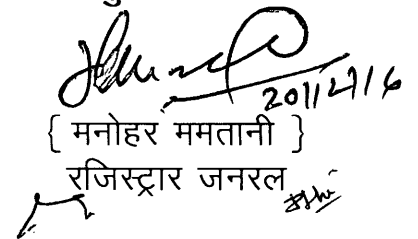 20/12/16
{ मनोहर ममतानी }
रजिस्ट्रार जनरल